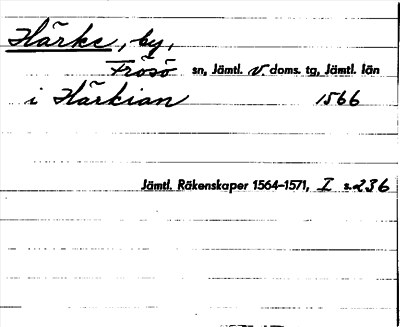 Härke, by,
Frösö sn, Jämtl. v. doms. tg, Jämtl. län
i Härkian 1566
Jämtl. Räkenskaper 1564-1571, I s.236